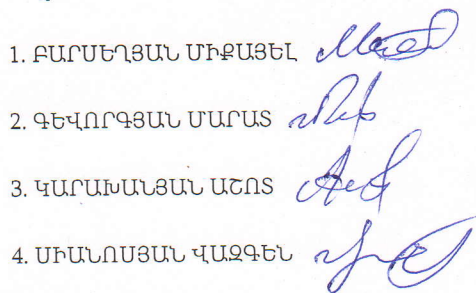 1. ԲԱՐՍԵՂՅԱՆ ՄԻՔԱՅԵԼ
2. ԳԵՎՈՐԳՅԱՆ ՄԱՐԱՏ
3. ԿԱՐԱԽԱՆՅԱՆ ԱՇՈՏ
4. ՍԻԱՆՈՍՅԱՆ ՎԱԶԳԵՆ